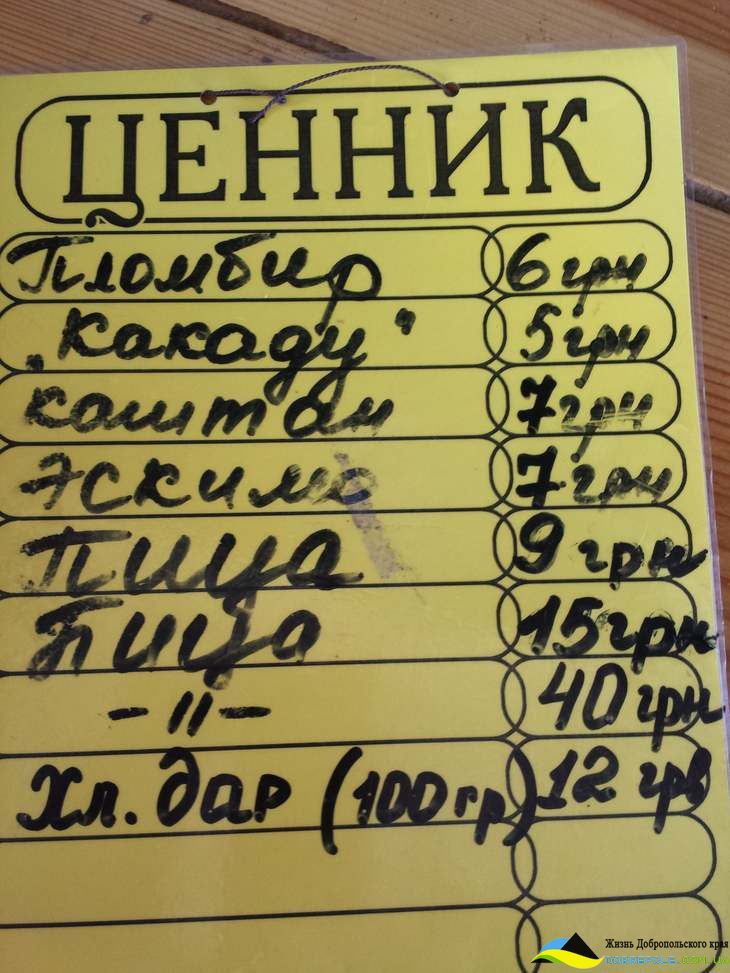 ЦЕННИК
Пломбир 6 грн
"Какаду" 5 грн
Каштан 7 грн
Эскимо 7 грн
Пица 9 грн
Пица 15 грн
-"- 40 грн
Хл. дар (100 гр) 12 грв
Жизнь Добропольского края
DOBREPOLE.COM.UA